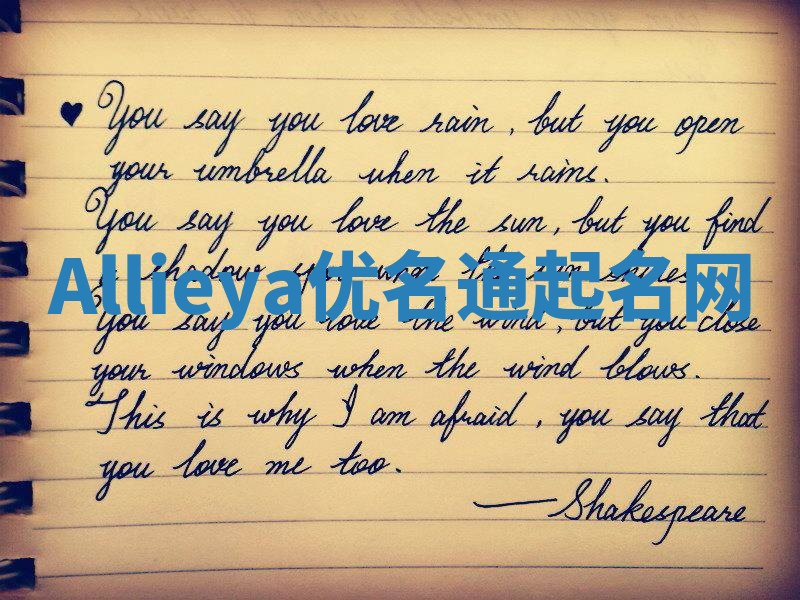 ♥ You say you love rain, but you open
your umbrella when it rains.
You say you love the sun, but you find
a shadow spot when the sun shines.
Allieya优名通起名网
You say you love the wind, but you close
your windows when the wind blows.
This is why I am afraid, you say that
you love me too.
—Shakespeare